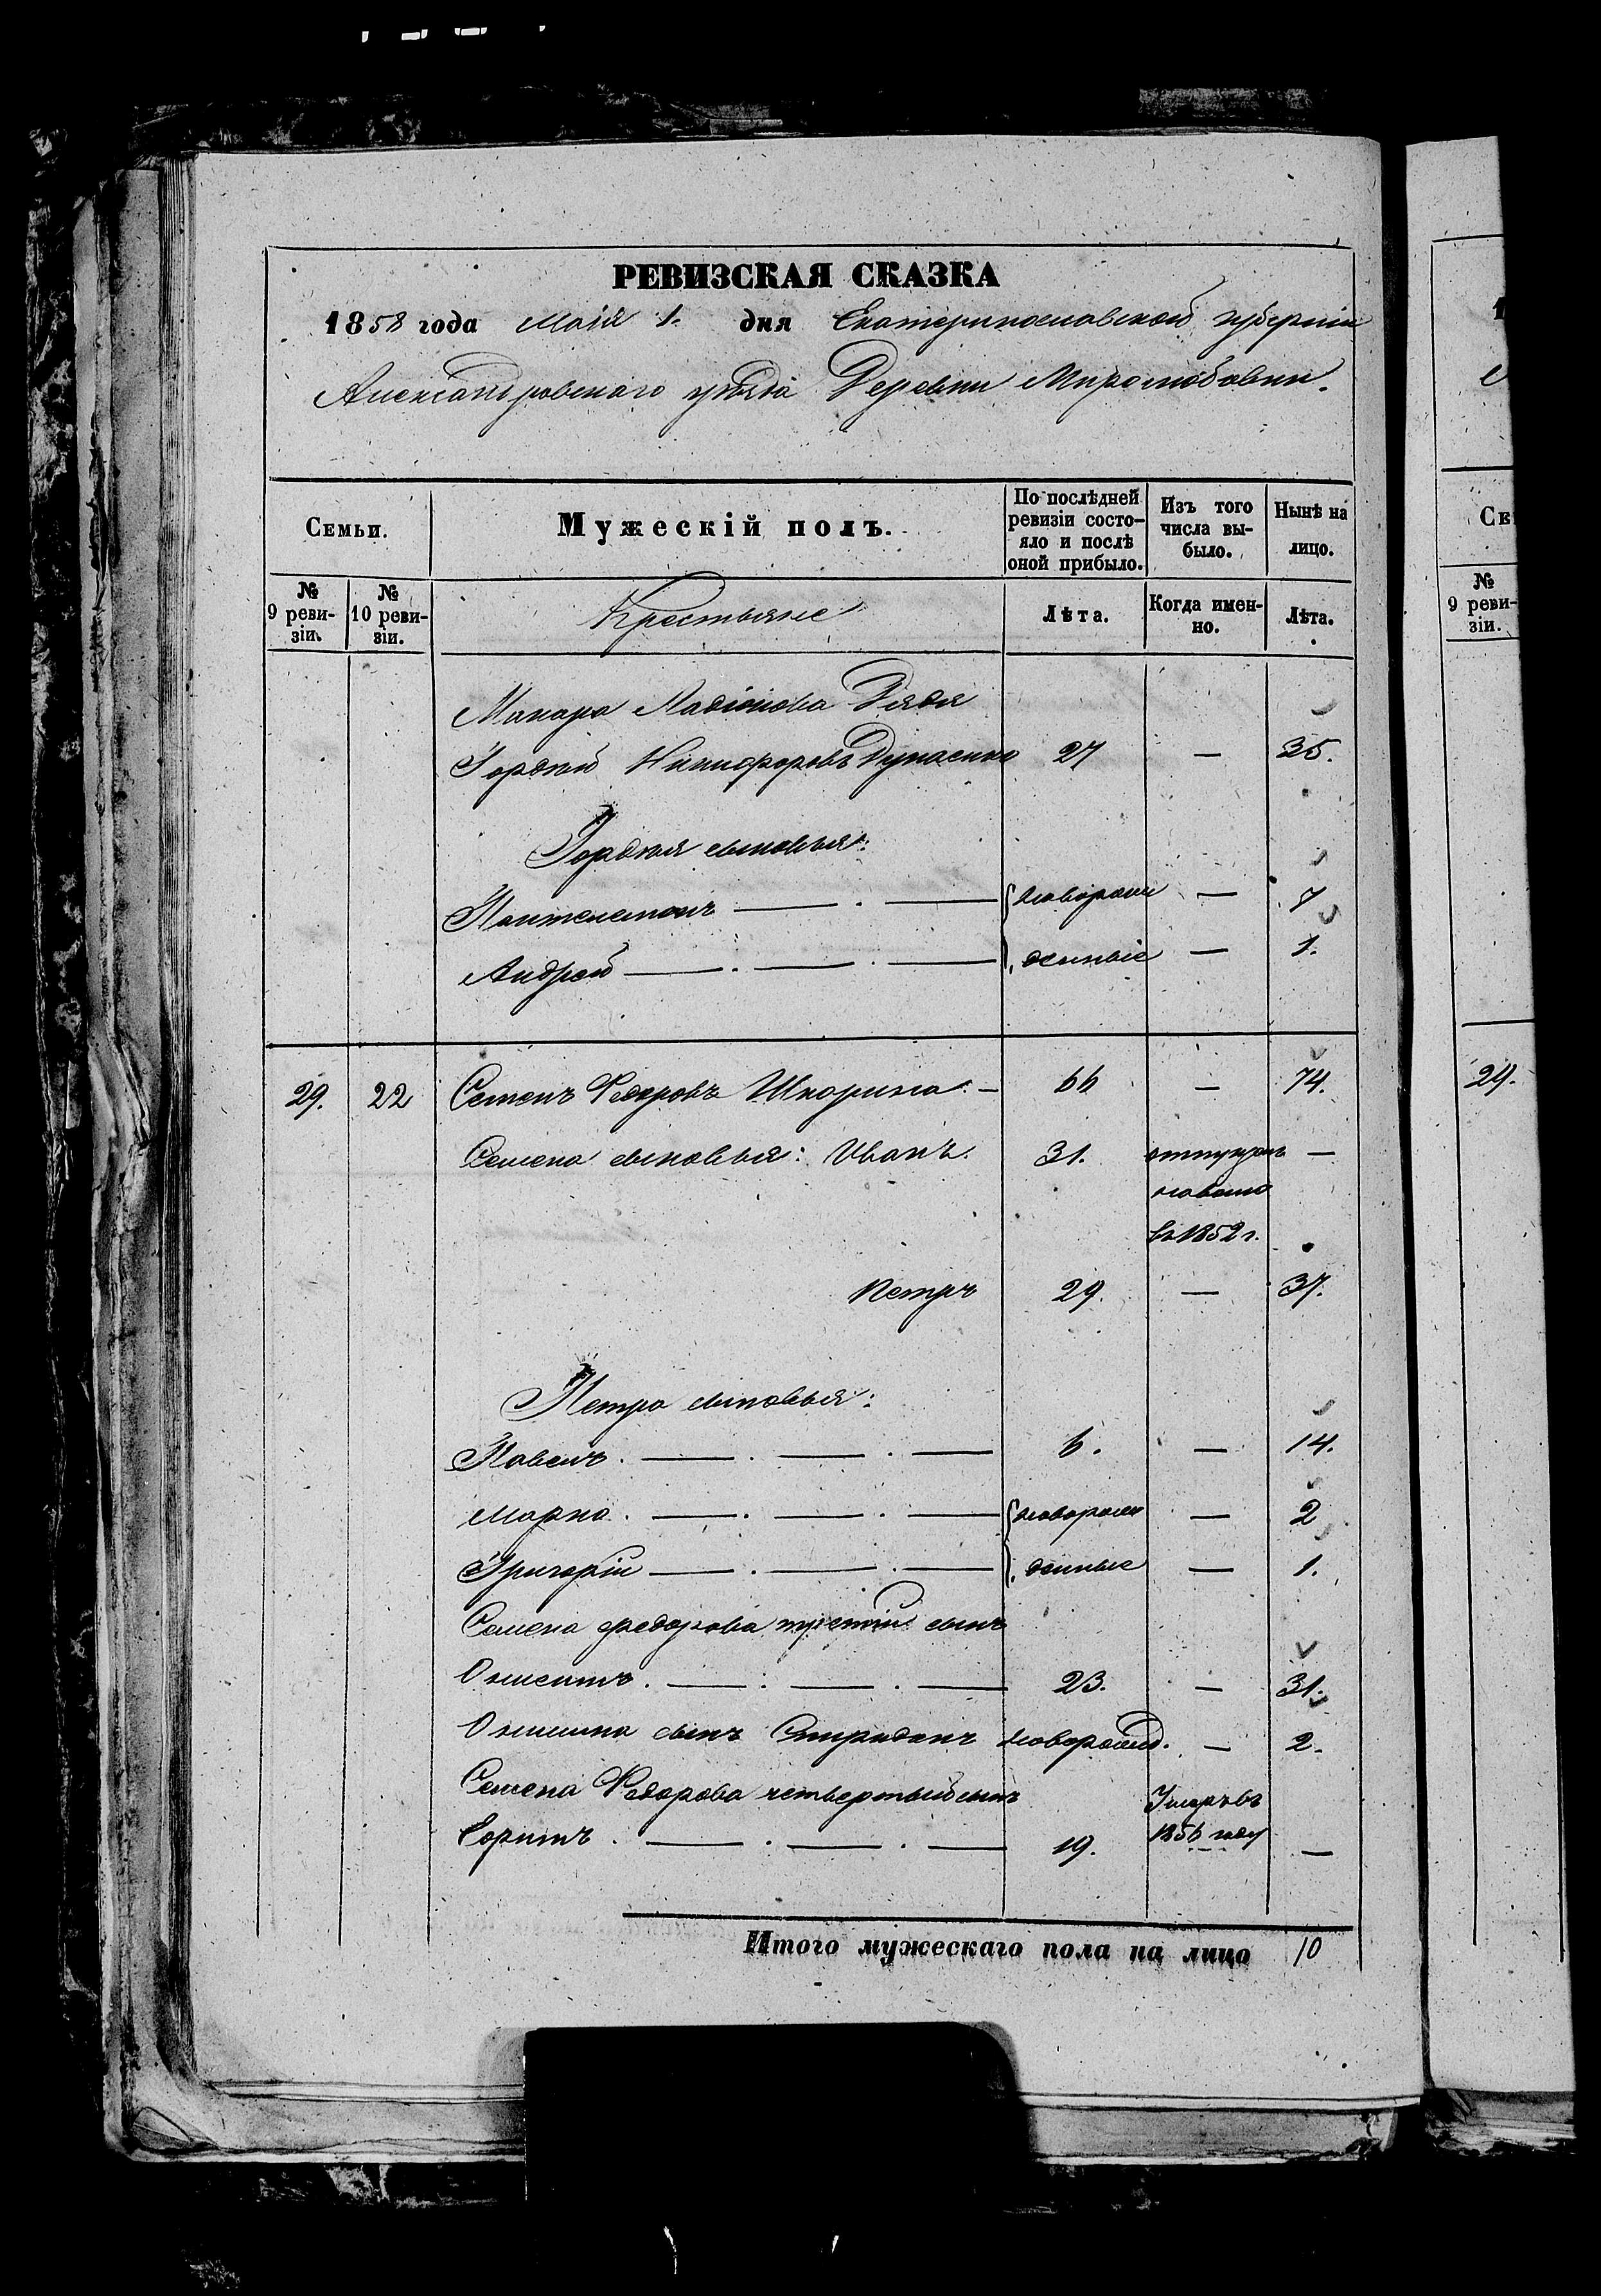 РЕВИЗСКАЯ СКАЗКА
1858 года Маія 1. дня Екатеринославской губерніи
Александровскаго уѣзда Деревни Миролюбовки.
Семьи.
Мужескій полъ.
По послѣдней ревизіи состо-яло и послѣ оной прибыло.
Изъ того числа вы-было.
Нынѣ на лицо.
№ 9 реви-зіи.
№ 10 реви-зіи.
Крестьяне
Лѣта.
Когда имен-но.
Лѣта.
Макара Радіонова Дядя
Гордѣй Никифоровъ 27 — 35.
Гордѣя сыновья:
Пантелемонъ новорож — 7
Андрей денныіе — 1.
29. 22 Семенъ Федоровъ Шкорина 66 — 74.
Семена сыновья: Иванъ. 31. —
в 1852 г.
Петръ 29. — 37.
Петра сыновья:
Павелъ. 6. — 14.
Марко. новорож — 2
Григорій денные — 1.
Семена Федорова третій сынъ
Онисимъ. 23. — 31.
Онисима сынъ Спиридонъ новорожд. — 2.
Семена Федорова четвертый сынъ
19. Умеръ въ 1856 году —
Итого мужескаго пола на лицо 10
1
Се
№ 9 реви-зіи.
29.